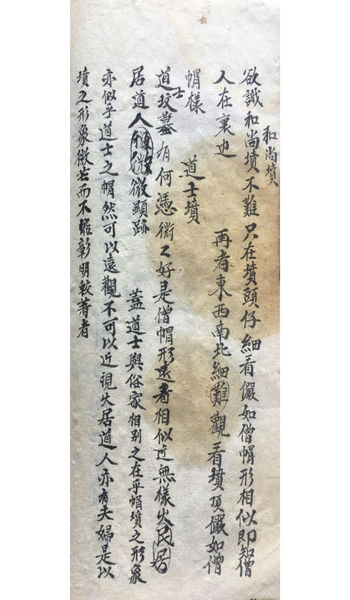 和尚墳
欲識和尚墳不難只在墳頭仔細看儼如僧帽形相似即知僧
人在裏也 再者東西南北細難觀看墳頂儼如僧
帽樣 道士墳
道士坟墓有何憑衜々好是僧帽形遠看相似近無樣火居
居道人微微顯跡 蓋道士與俗家相別之在乎帽墳之形象
亦似乎道士之帽然可以遠觀不可以近視火居道人亦有夫婦是以
墳之形象微芒而不能彰明較著者